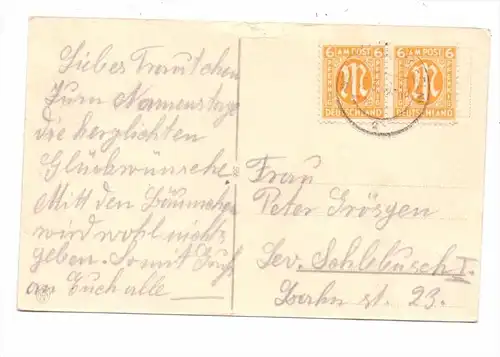 Liebes Trautchen
Zum Namenstage
die herzlichten
Glückwünsche.
Mitt den Bäumchen
wird wohl nichts
geben. Somit Gruß
an Euch alle
6 AM POST 6
M
DEUTSCHLAND
6 AM POST 6
M
DEUTSCHLAND
Frau
Peter Grösgen
Lev. Schlebusch I.
st. 23.